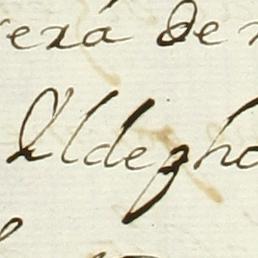 erá de
Ildepho